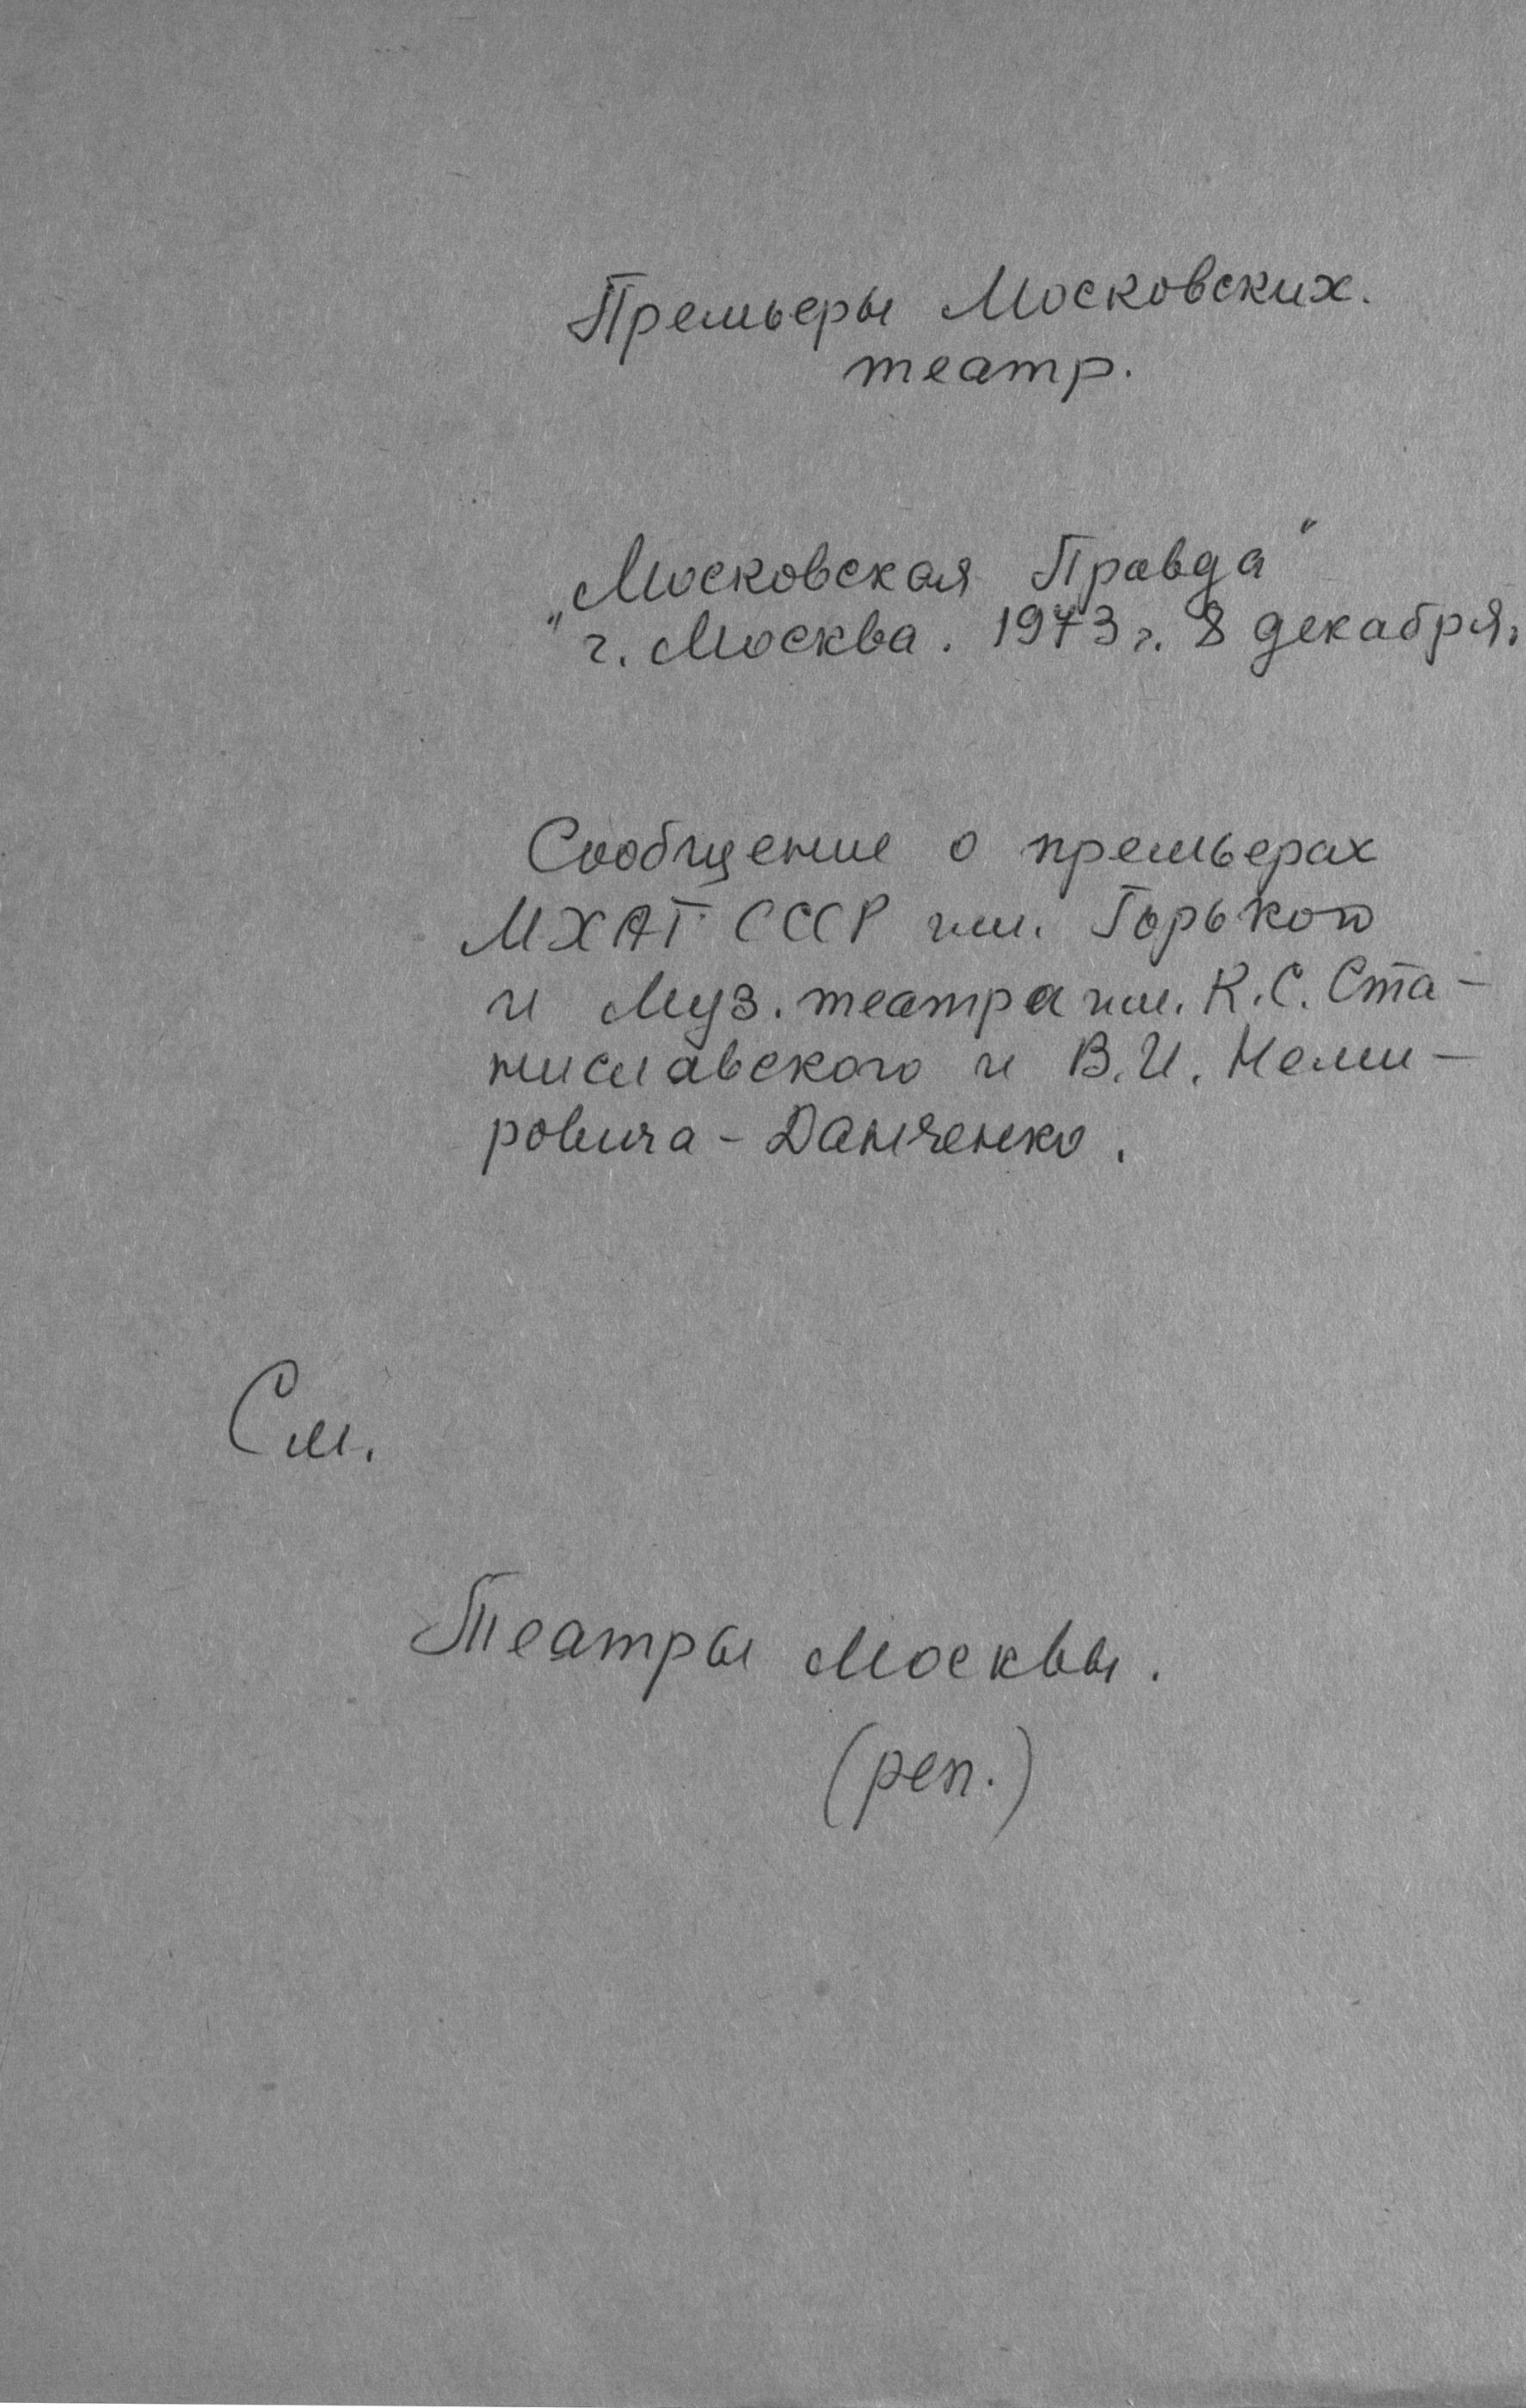 Премьеры Московских.
театр.
„Московская Правда"
г. Москва. 1973 г. 8 декабря.
Сообщение о премьерах
МХАТ СССР им. Горького
и Муз. театра им. К.С. Ста-
ниславского и В.И. Неми-
ровича-Данченко.
См.
Театры Москвы.
(реп.)